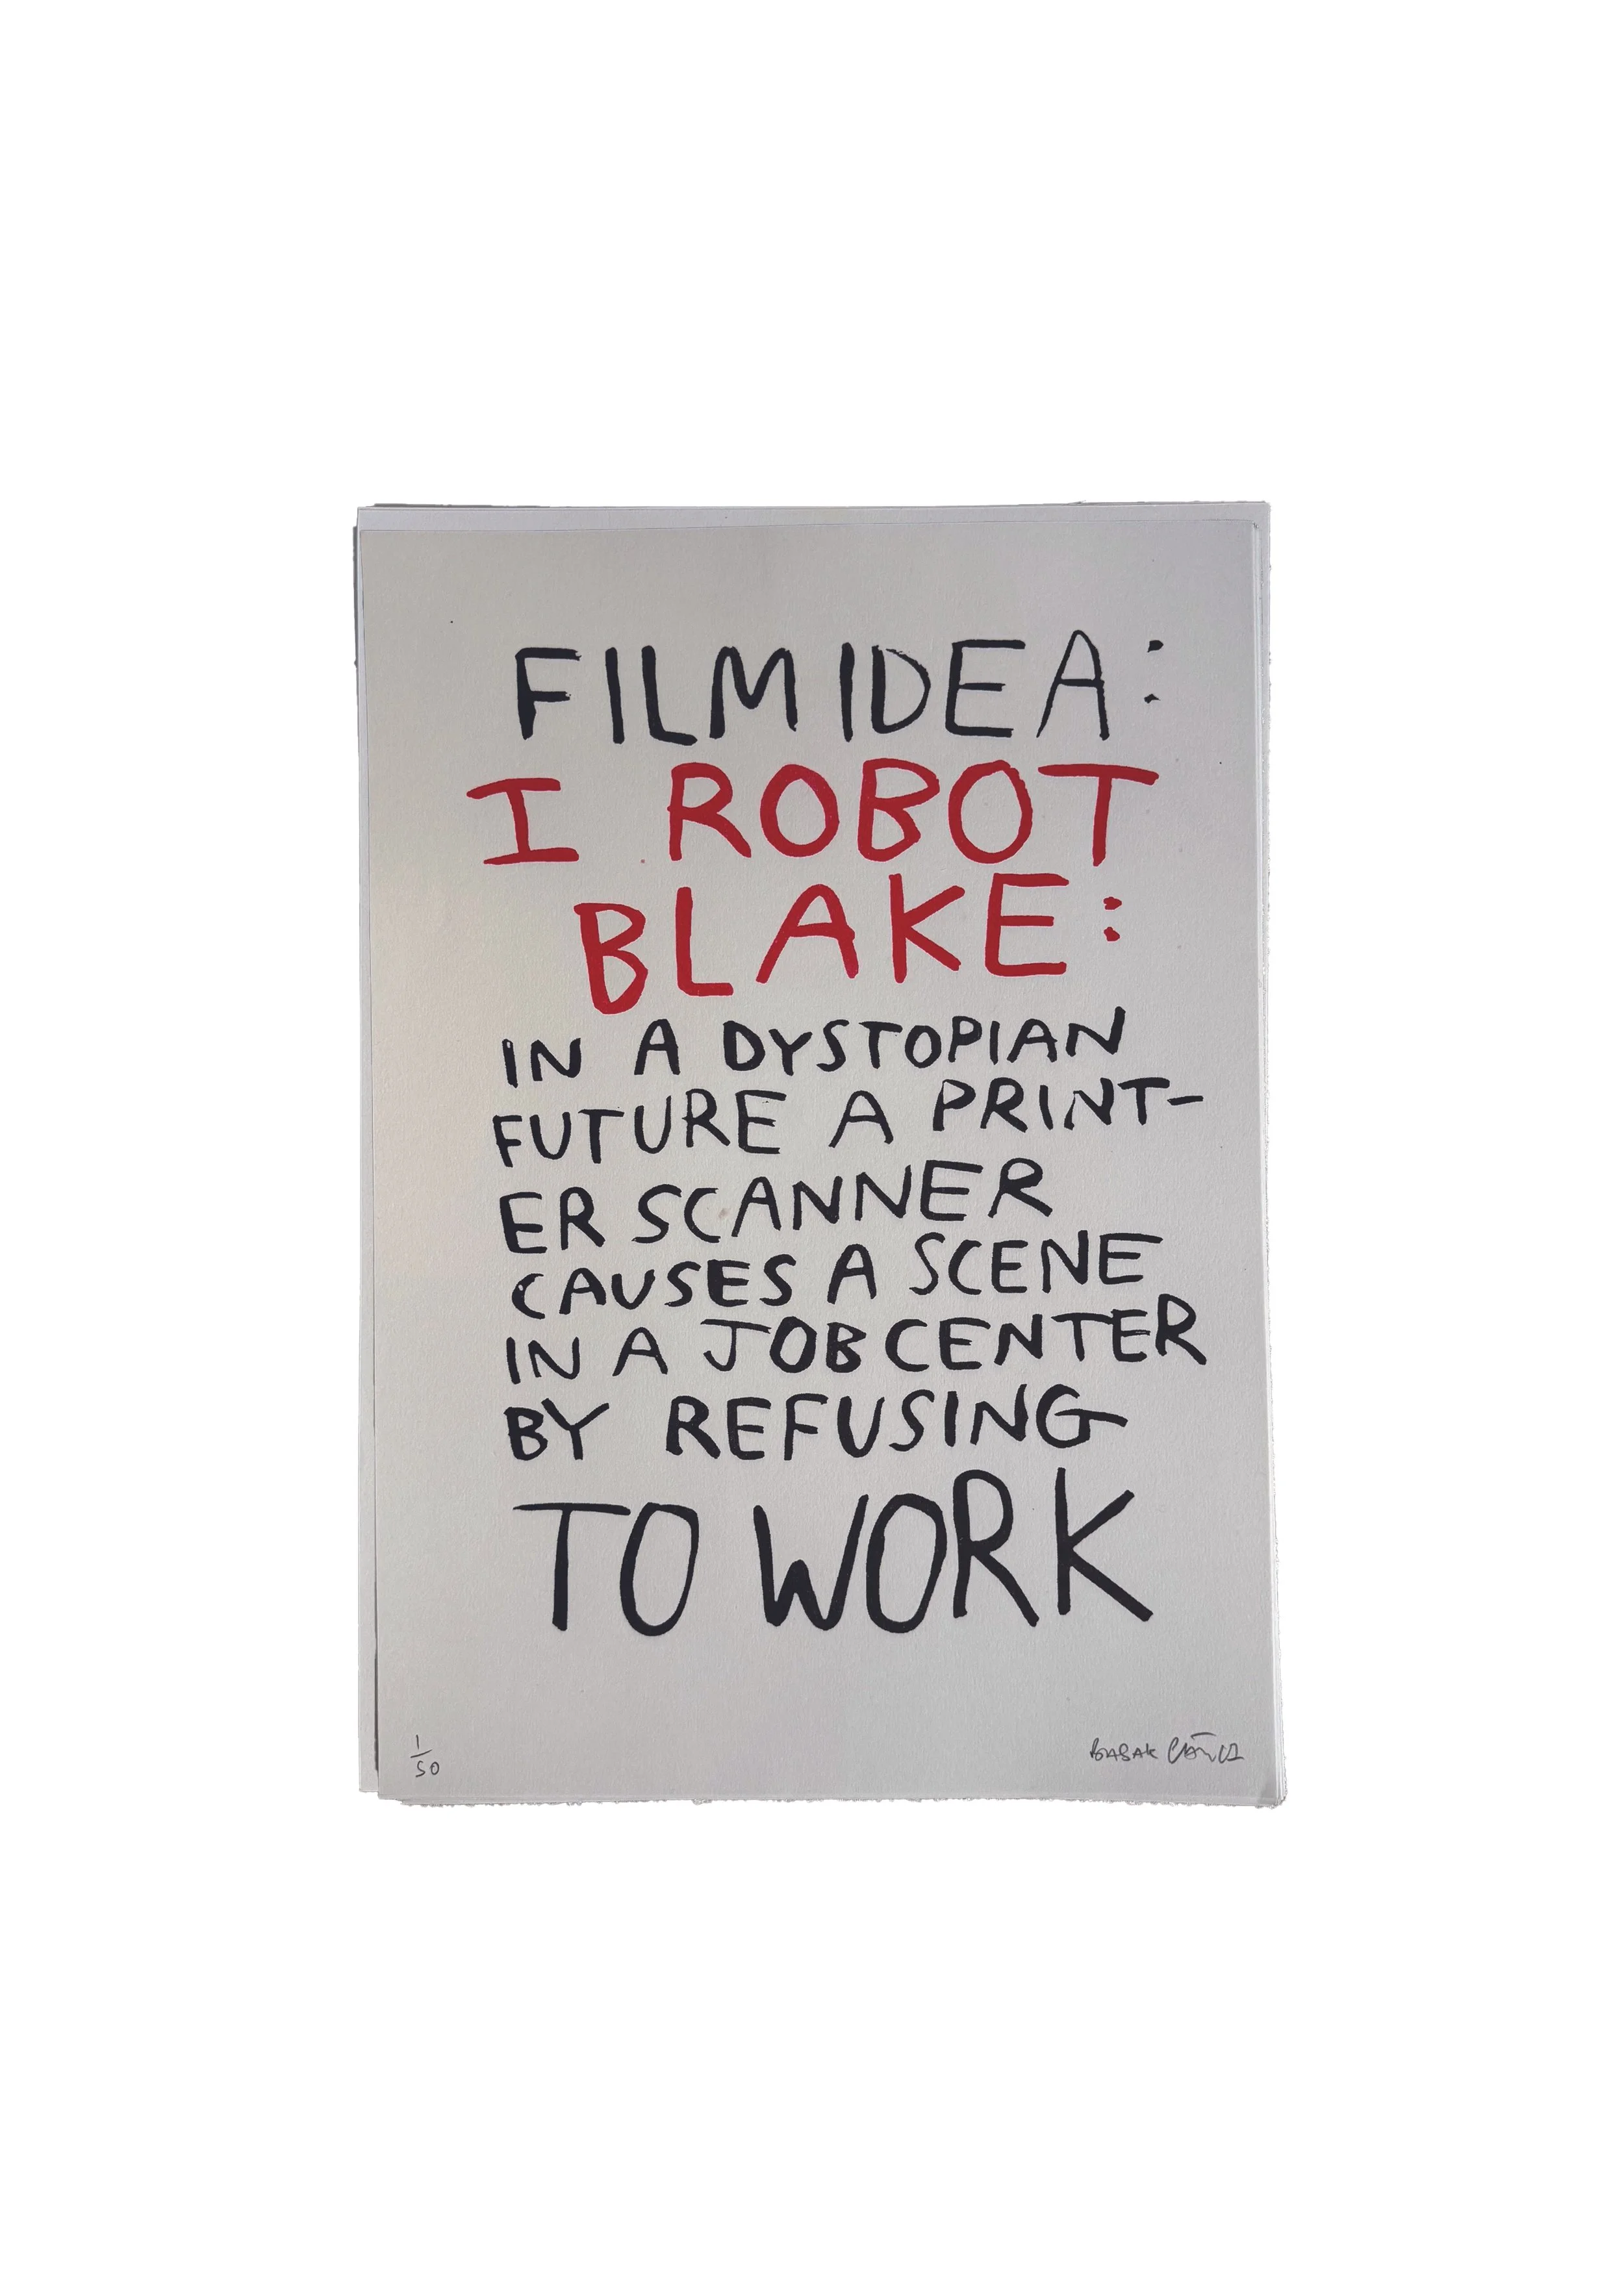 FILM IDEA:
I ROBOT
BLAKE:
IN A DYSTOPIAN
FUTURE A PRINT-
ER SCANNER
CAUSES A SCENE
IN A JOBCENTER
BY REFUSING
TO WORK
1/50
BASAK